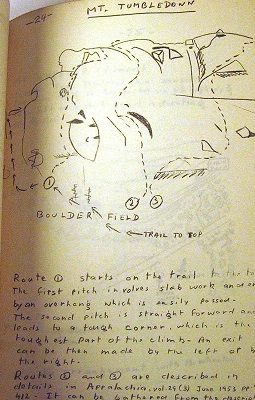 -24-
MT. TUMBLEDOWN
1
2
3
BOULDER FIELD
TRAIL TO TOP
Route 1 starts on the trail to the to
The first pitch involves slab work and
by an overhang which is easily passed.
The second pitch is straight forward an
leads to a tough corner, which is the
toughest part of the climb. An exit
can be then made by the left or b
the right.
Routes 2 and 3 are described in
details in Appalachia, vol. 29 (3) June 1953 pp.
412. It can be gathered from the